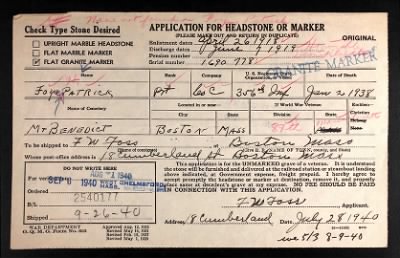 Check Type Stone Desired
APPLICATION FOR HEADSTONE OR MARKER
(PLEASE MAKE OUT AND RETURN IN DUPLICATE)
ORIGINAL
UPRIGHT MARBLE HEADSTONE
FLAT MARBLE MARKER
FLAT GRANITE MARKER
Enlistment dates April 26 1918
Discharge dates June 9 1919
Serial number 1690 778
GRANITE MARKER
Name
Rank
Company
Date of Death
Patrick
Pvt
Co C
356th Inf
Jan 2 1938
Name of Cemetery
Located in or near
If World War Veteran
City
State
Mt Benedict
Boston
Mass
To be shipped to F W Foss
Boston Mass
Whose post-office address is 18 Cumberland St Boston Mass
DO NOT WRITE HERE
This application is for the UNMARKED grave of a veteran. It is understood that the stone will be furnished and delivered at the railroad station or steamboat landing above indicated, at Government expense, freight prepaid. I hereby agree to accept promptly the headstone or marker at destination, remove it, and properly place same at decedent's grave at my expense. NO FEE SHOULD BE PAID IN CONNECTION WITH THIS APPLICATION.
SEP 6 1940
CHELMSFORD
MASS.
1940
Ordered
2540177
B/L
Shipped
9-26-40
F W Foss
Applicant
18 Cumberland
July 28 1940
Address
WAR DEPARTMENT
O. Q. M. G. Form No. 623
8-9-40